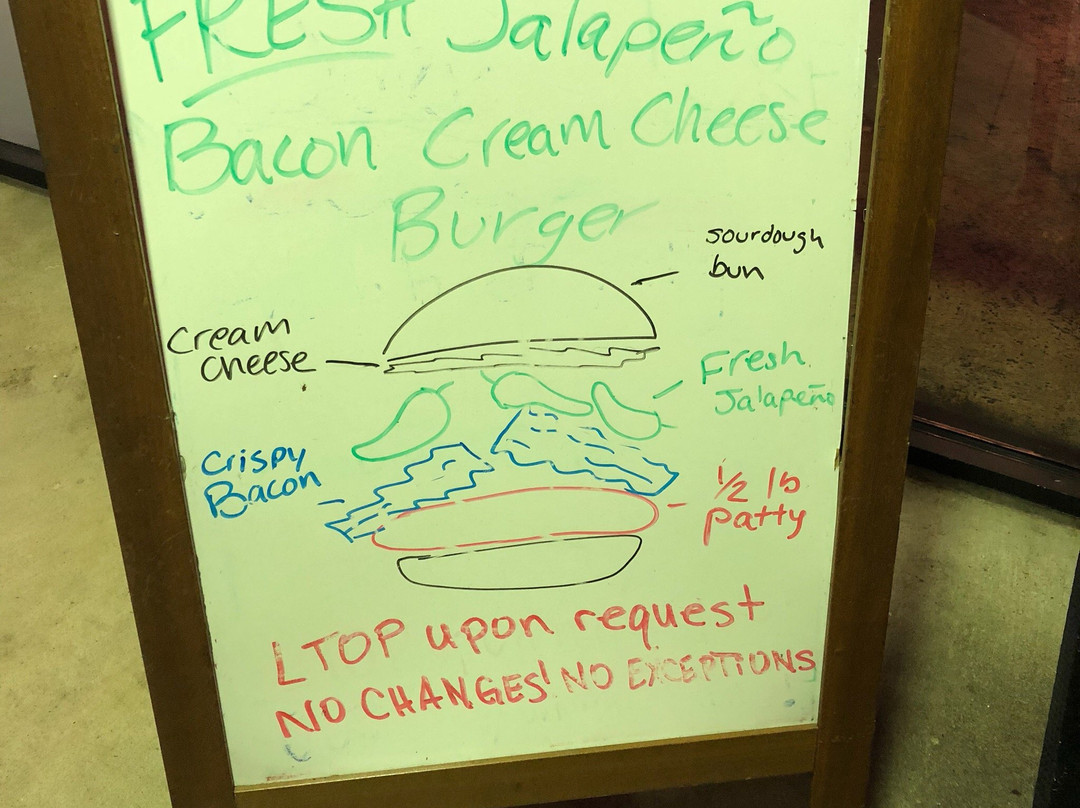 FRESH Jalapeño
Bacon Cream Cheese
Burger
sourdough
bun
Cream
Cheese
Fresh
Jalapeño
Crispy
Bacon
1/2 lb
patty
LTOP upon request
NO CHANGES! NO EXCEPTIONS